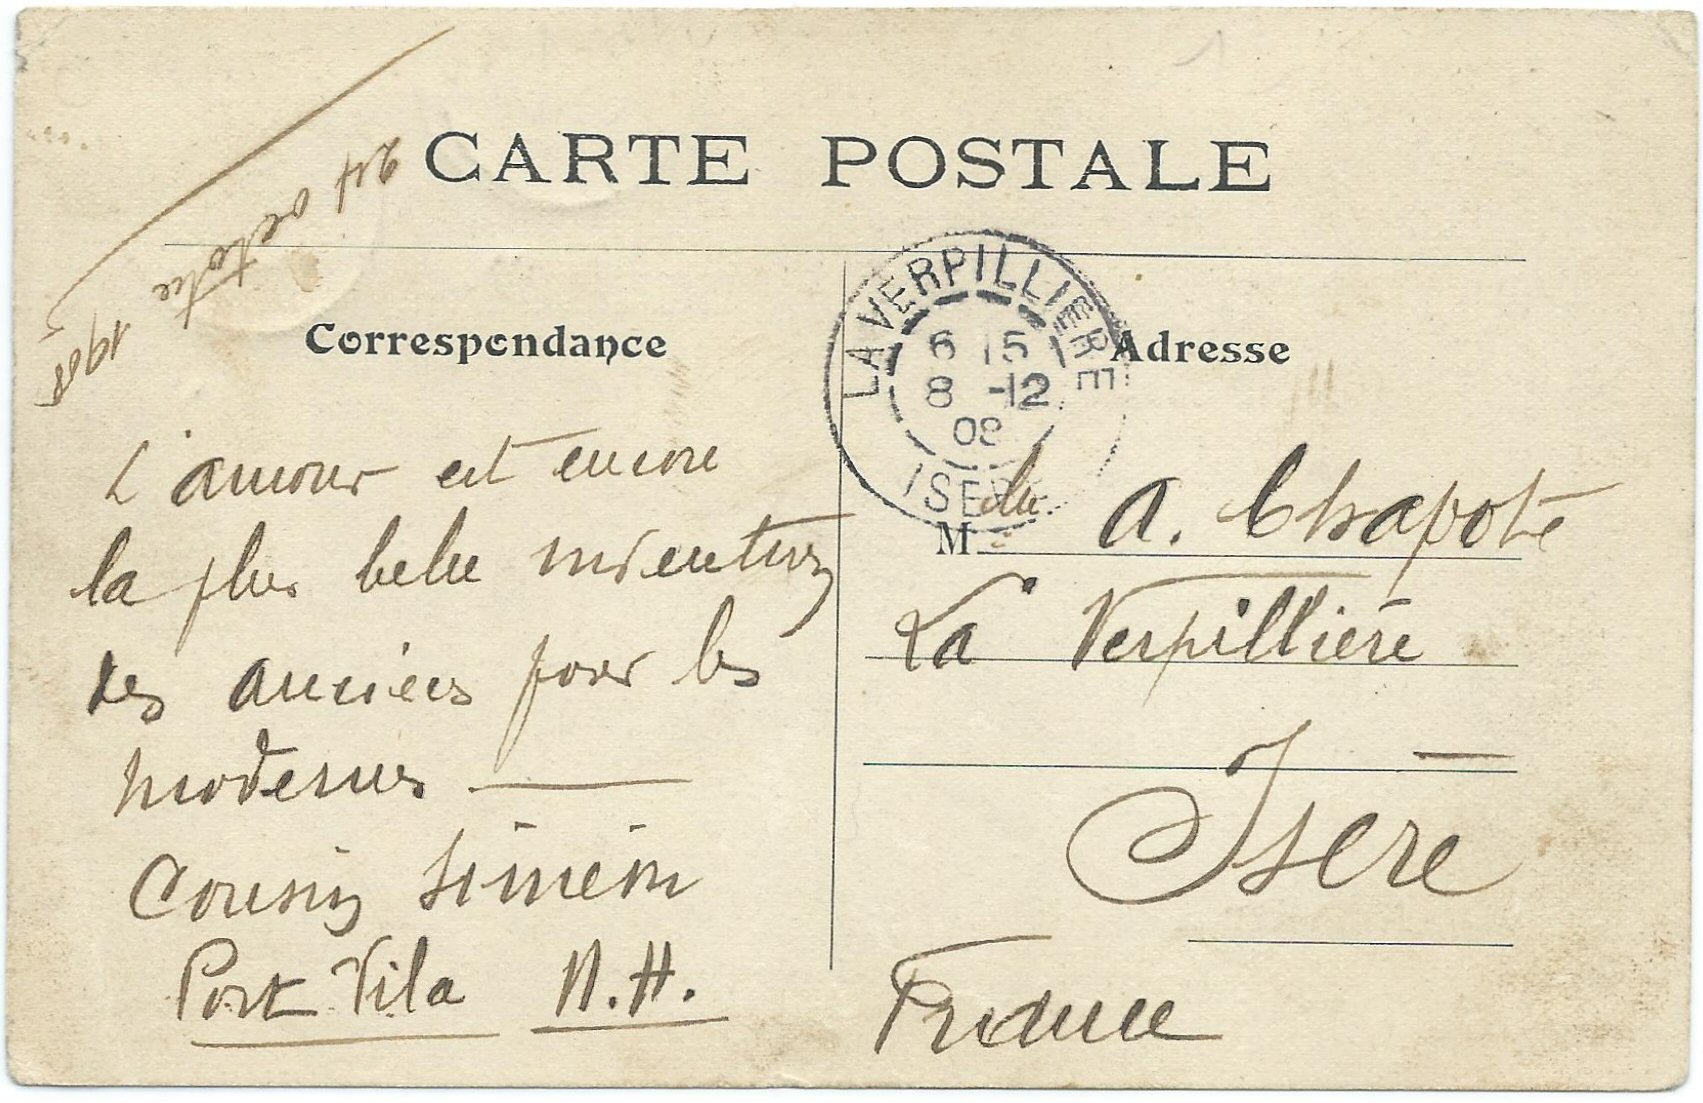 CARTE POSTALE
24 octobre 1908
Correspondance
Adresse
LA VERPILLIERE
6 15
8 -12
08
ISERE
L'amour est encore
la plus belle invention
des anciens pour les
modernes
Cousin Siméon
Port Vila N.H.
M lle A. Chapot
La Verpillière
Isère
France